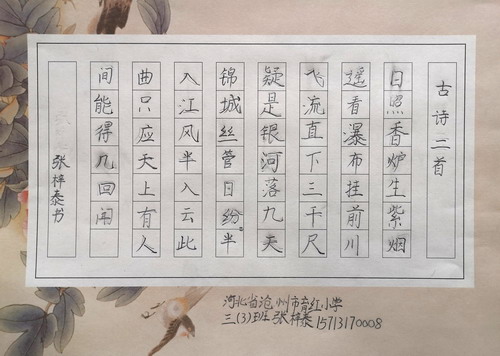 古诗二首
日照香炉生紫烟
遥看瀑布挂前川
飞流直下三千尺
疑是银河落九天
锦城丝管日纷半
入江风半入云此
曲只应天上有人
间能得几回闻
张梓泰书
河北省沧州市育红小学
三(3)班 张梓泰 15713170008